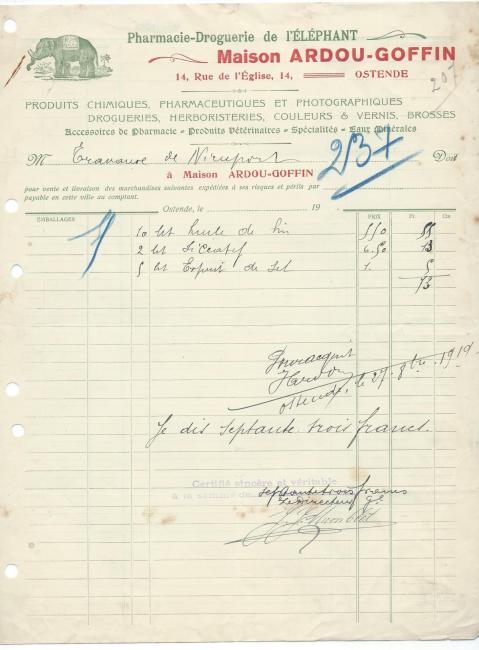 Pharmacie-Droguerie de l'ÉLÉPHANT
Maison ARDOU-GOFFIN
14, Rue de l'Église, 14, OSTENDE
207
PRODUITS CHIMIQUES, PHARMACEUTIQUES ET PHOTOGRAPHIQUES
DROGUERIES, HERBORISTERIES, COULEURS & VERNIS, BROSSES
Accessoires de Pharmacie - Produits Vétérinaires - Spécialités - Eaux Minérales
M de Nieuport 237 Doit
à Maison ARDOU-GOFFIN
pour vente et livraison des marchandises suivantes expédiées à ses risques et périls par
payable en cette ville au comptant.
Ostende, le 19
EMBALLAGES PRIX Fr. Cts
1 10 lit huile de lin 5.50 55
2 lit Siccatif 6.50 13
5 lit Esprit de Sel 1. 5
73
Pour acquit
Ostende, le 27. 8bre 1919
Je dis Septante trois francs.
Certifié sincère et véritable
à la somme de
Septante trois francs
Le Directeur gl